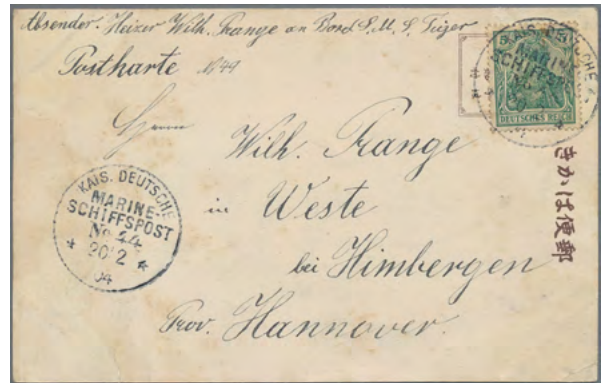 Absender: Heizer Wilh. Range an Bord S. M. S. Tiger
Postkarte N 44
Herrn
Wilh. Range
in Weste
bei Himbergen
Prov. Hannover.
KAIS. DEUTSCHE
MARINE-
SCHIFFSPOST
No 44
20/2
04
KAIS. DEUTSCHE
MARINE-
SCHIFFSPOST
DEUTSCHES REICH
きかは便郵